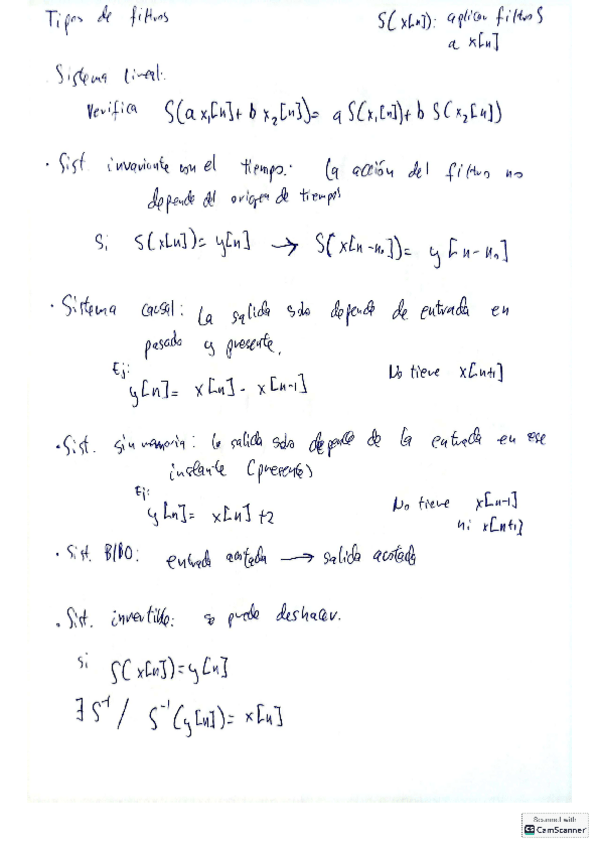 Tipos de filtros
S(x[n]): aplicar filtro S
a x[n]
Sistema lineal:
Verifica S(a x₁[n] + b x₂[n]) = a S(x₁[n]) + b S(x₂[n])
· Sist. invariante con el tiempo: La acción del filtro no
depende del origen de tiempos
Si S(x[n]) = y[n] → S(x[n-n₀]) = y[n-n₀]
· Sistema causal: La salida solo depende de entrada en
pasado y presente.
Ej:
y[n] = x[n] - x[n-1]
No tiene x[n+1]
· Sist. sin memoria: la salida solo depende de la entrada en ese
instante (presente)
Ej:
y[n] = x[n] + 2
No tiene x[n-1]
ni x[n+1]
· Sist. BIBO: entrada acotada → salida acotada
· Sist. invertible: se puede deshacer.
si S(x[n]) = y[n]
∃ S⁻¹ / S⁻¹(y[n]) = x[n]
Scanned with
CS CamScanner